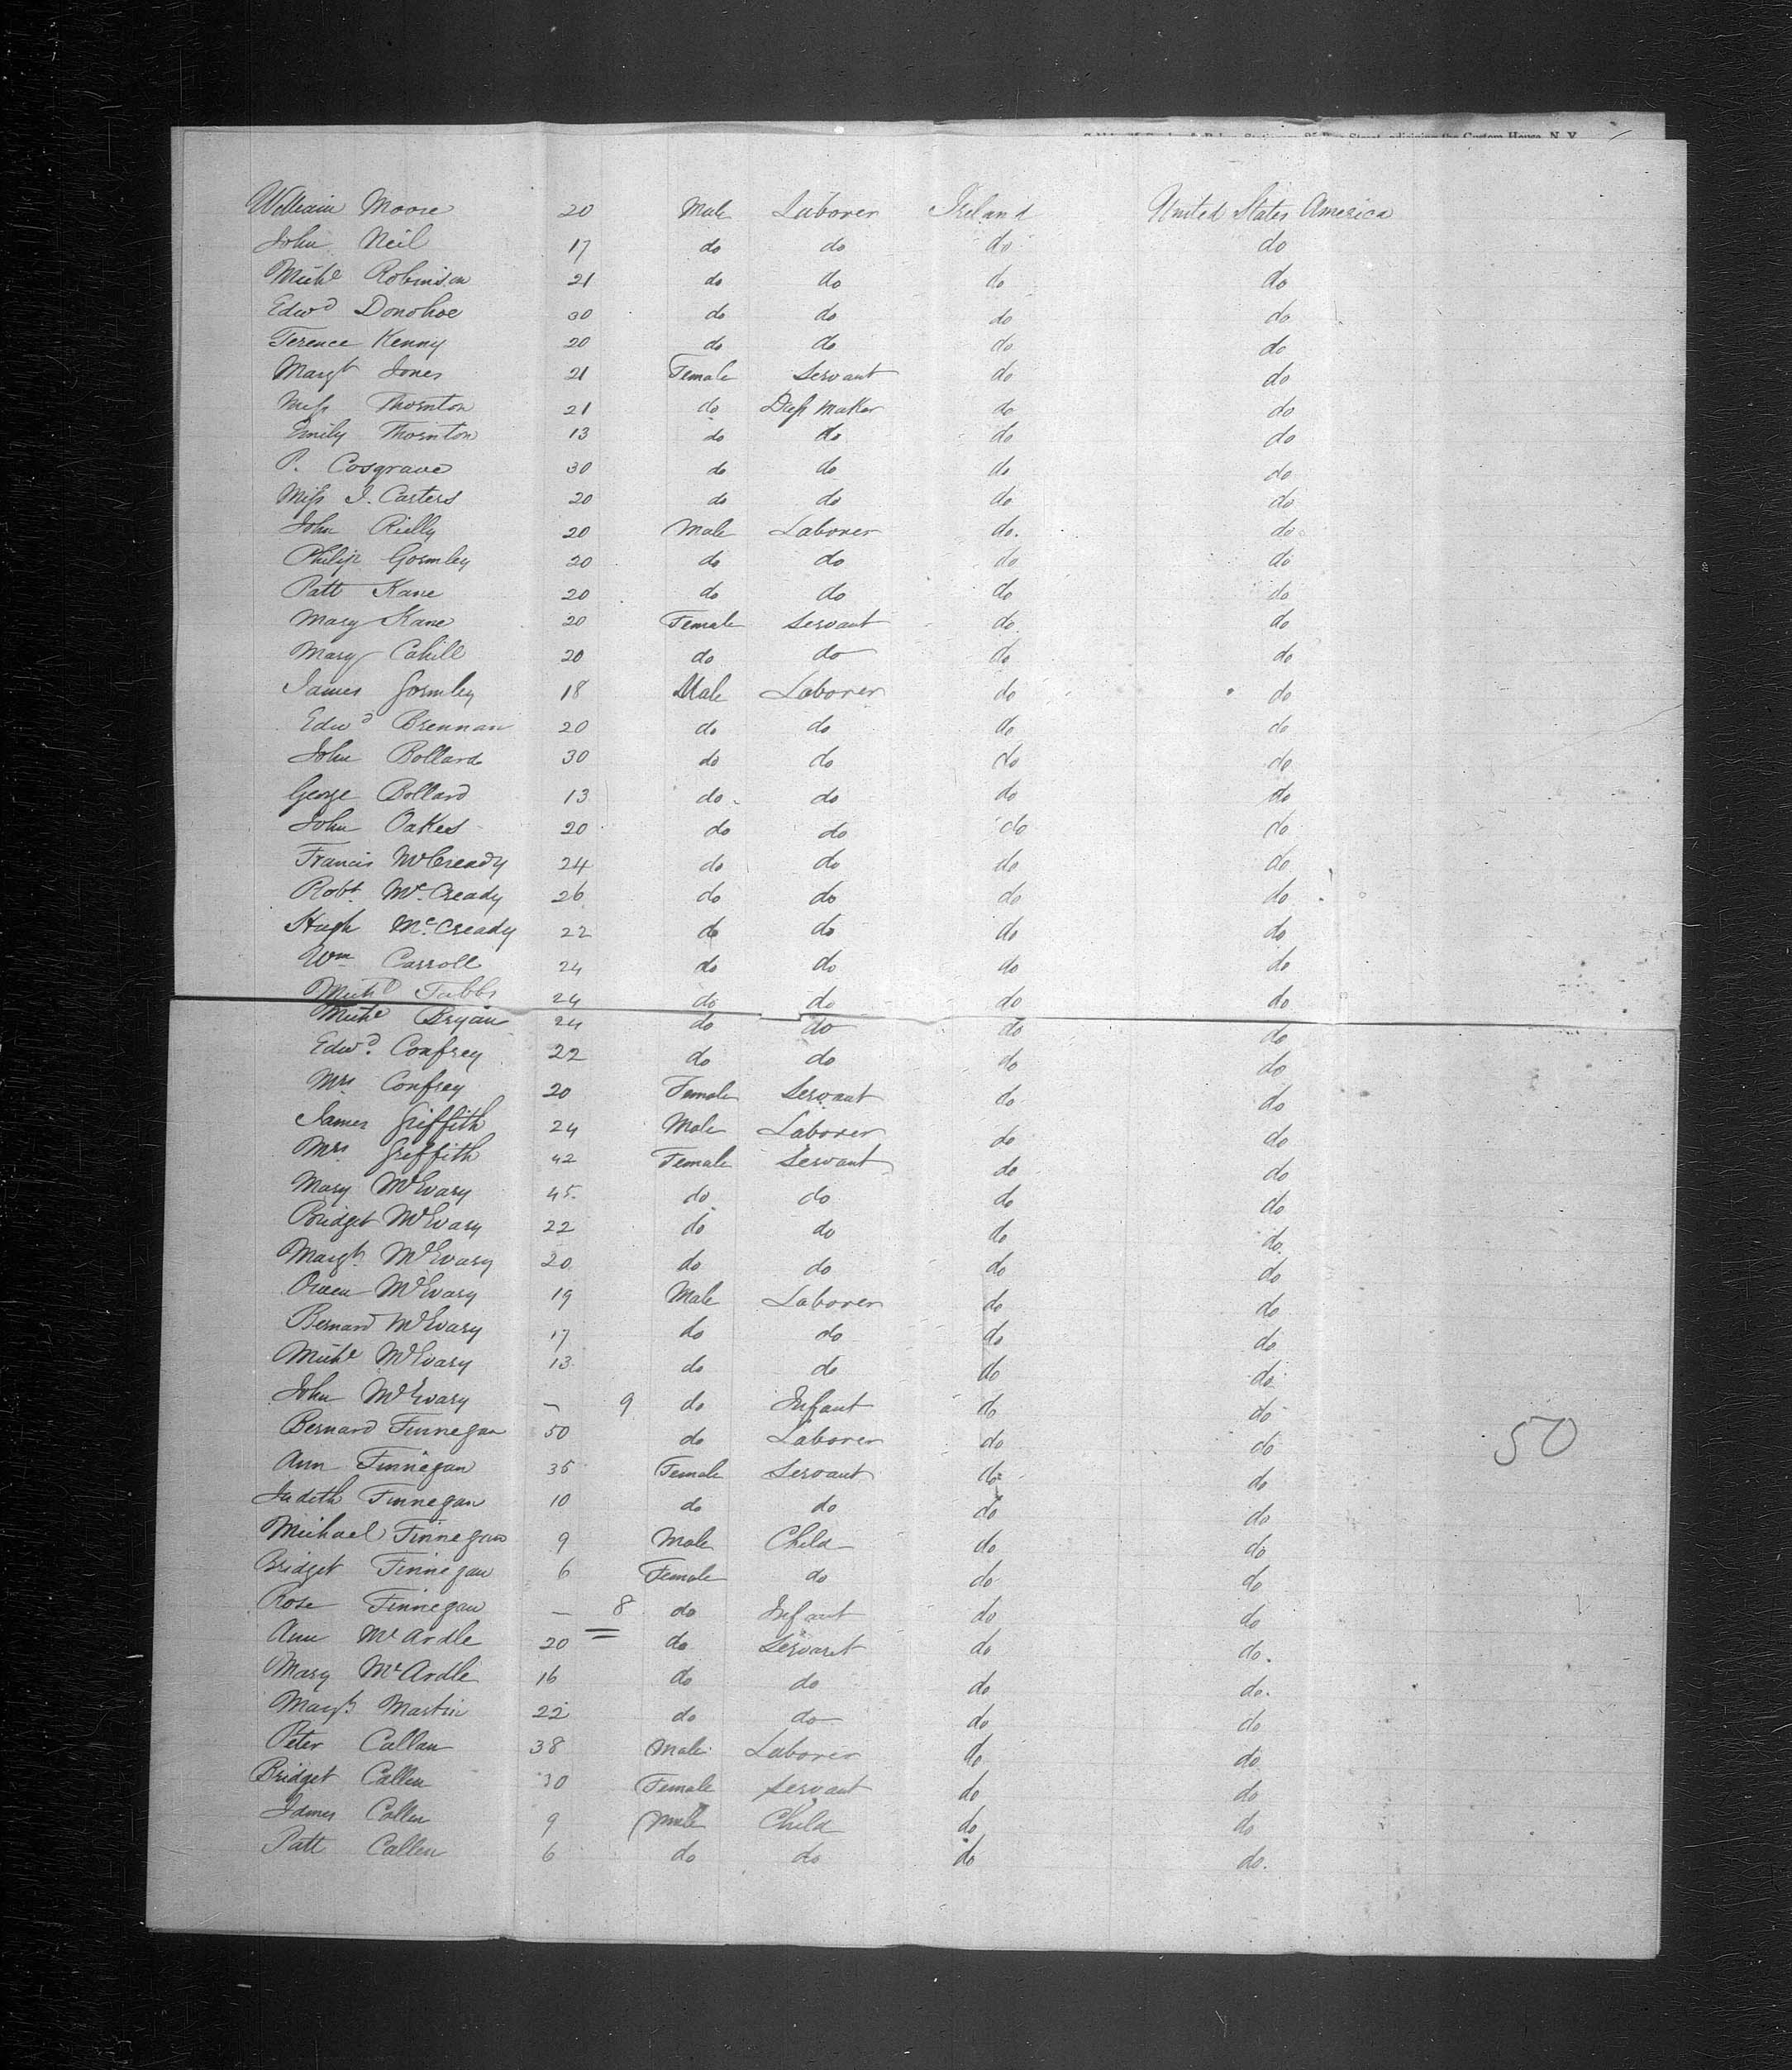 Custom House, N. Y.
William Moore 20 Male Laborer Ireland United States America
John Neil 17 do do do do
Michl Robinson 21 do do do do
Edwd Donohoe 30 do do do do
Terence Kenny 20 do do do do
Margt Jones 21 Female Servant do do
Miss Thornton 21 do Dress Maker do do
Emily Thornton 13 do do do do
P. Cosgrave 30 do do do do
Miss J. Carters 20 do do do do
John Rielly 20 Male Laborer do. do
Philip Gormley 20 do do do do
Patt Kane 20 do do do do
Mary Kane 20 Female Servant do. do
Mary Cahill 20 do do do do
James Gormley 18 Male Laborer do do
Edwd Brennan 20 do do do do
John Bollard 30 do do do do
George Bollard 13 do do do do
John Oakes 20 do do do do
Francis McCready 24 do do do do
Robt. Mc.Cready 26 do do do do
Hugh Mc.Cready 22 do do do do
Wm Carroll 24 do do do do
Michl Tubbs 24 do do do do
Michl Bryan 24 do do do do
Edwd. Confrey 22 do do do do
Mrs Confrey 20 Female Servant do do
James Griffith 24 Male Laborer do do
Mrs Griffith 42 Female Servant do do
Mary McEvary 45. do do do do
Bridget McEvary 22 do do do do.
Margt. McEvary 20 do do do do
Owen McEvary 19 Male Laborer do do
Bernard McEvary 17 do do do do
Michl McEvary 13 do do do do
John McEvary – 9 do Infant do do
Bernard Finnegan 50 do Laborer do do
50
Ann Finnegan 35 Female Servant do do
Judith Finnegan 10 do do do do
Michael Finnegan 9 Male Child do do
Bridget Finnegan 6 Female do do do
Rose Finnegan – 8 do Infant do do
Ann McArdle 20 do Servant do do.
Mary McArdle 16 do do do do.
Margt Martin 22 do do do do
Peter Callan 38 Male Laborer do do
Bridget Callen 30 Female Servant do do
James Callen 9 Male Child do do
Patt Callen 6 do do do do.